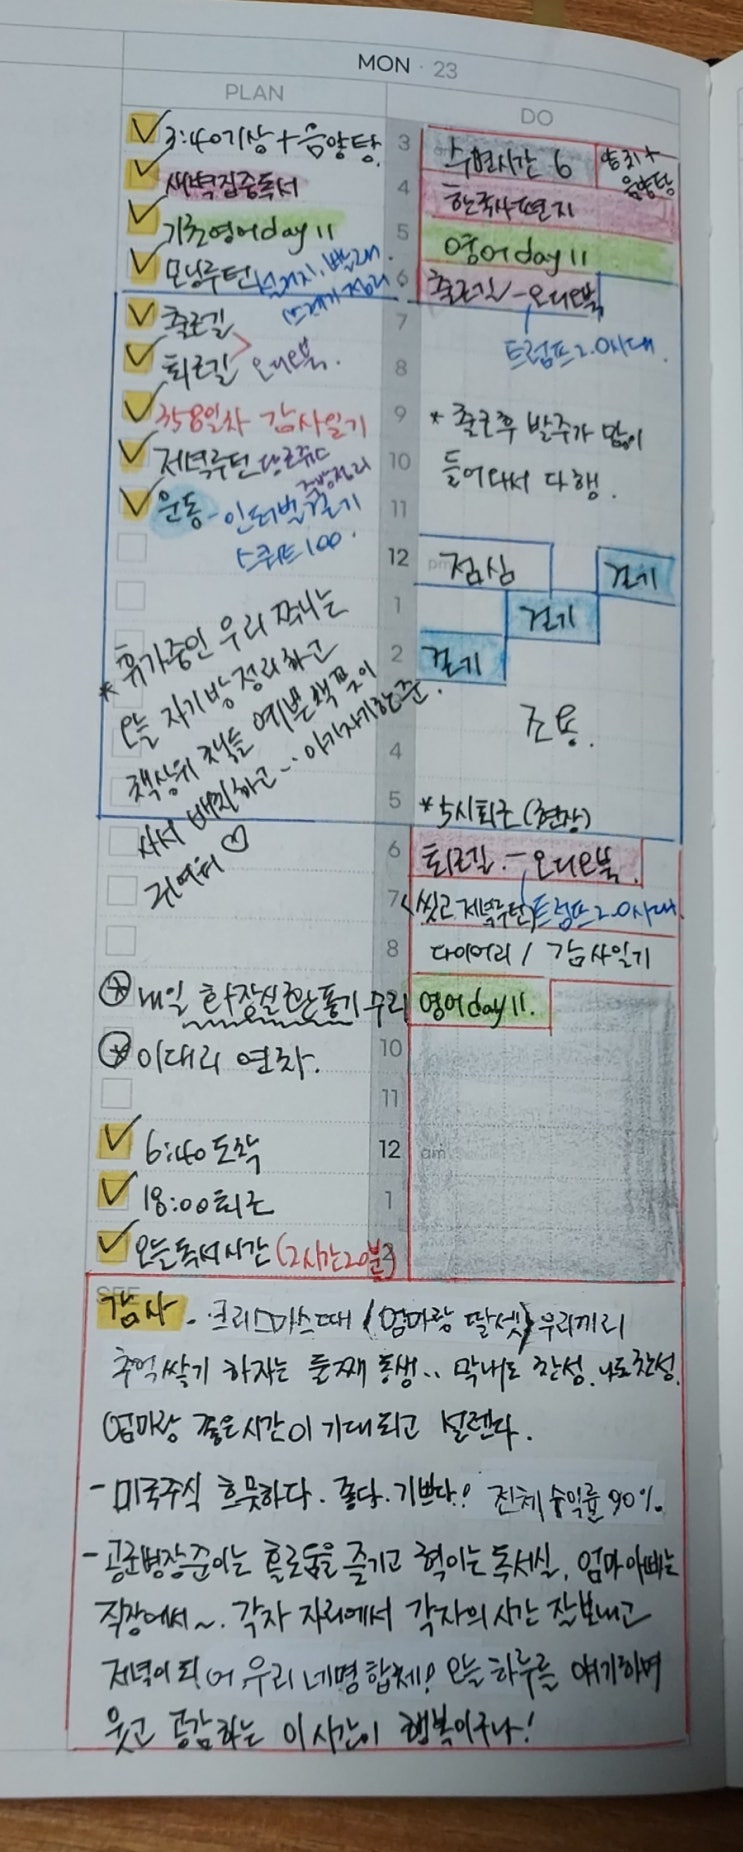 MON · 23
PLAN
DO
3:40기상+음양탕
새벽집중독서
기초영어day 11
모닝루틴 설거지, 빨래,
쓰레기 정리
출근길
퇴근길 오디오북.
358일차 감사일기
저녁루틴
주방정리
운동 - 인터벌 걷기
스쿼트 100.
* 휴가중인 우리 쭈니는
오늘 자기방 정리하고
책상위 책들 예쁜 책꽂이
사서 배치하고.. 아기자기한 준.
귀여워 ♡
내일 화장실 환풍기 수리
이대리 연차.
6:40 도착
18:00 퇴근
오늘 독서시간 (2시간20분)
3
수면시간 6
양치+
음양탕
4
한국사편지
5
영어day 11
6
출근길 - 오디오북
트럼프 2.0시대.
7
8
9
* 출근후 발주가 많이
10
들어와서 다행.
11
12
pm
점심
걷기
1
걷기
2
걷기
조용.
4
5
*5시퇴근(현장)
6
퇴근길 - 오디오북.
7
씻고 저녁루틴
트럼프 2.0시대.
8
다이어리 / 감사일기
영어day 11.
10
11
12
am
1
2
SEE
감사 - 크리스마스때 (엄마랑 딸셋) 우리끼리
추억쌓기 하자는 둘째 동생.. 막내도 찬성. 나도 찬성.
엄마랑 좋은시간이 기대되고 설렌다.
- 미국주식 흐뭇하다. 좋다. 기쁘다! 전체 수익률 90%.
- 공군병장준이는 홀로움을 즐기고 혁이는 독서실, 엄마아빠는
직장에서~. 각자 자리에서 각자의 시간 잘보내고
저녁이 되어 우리 네명 합체! 오늘 하루를 얘기하며
웃고 공감하는 이 시간이 행복이구나!